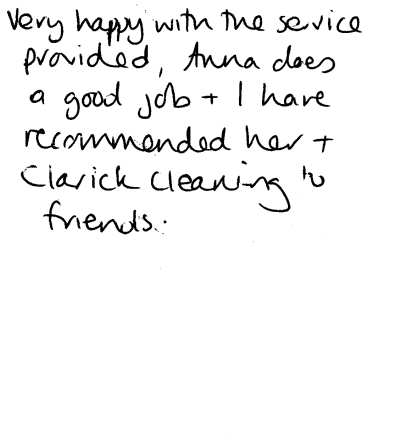 Very happy with the service
provided, Anna does
a good job + I have
recommended her +
Clarick Cleaning to
friends.